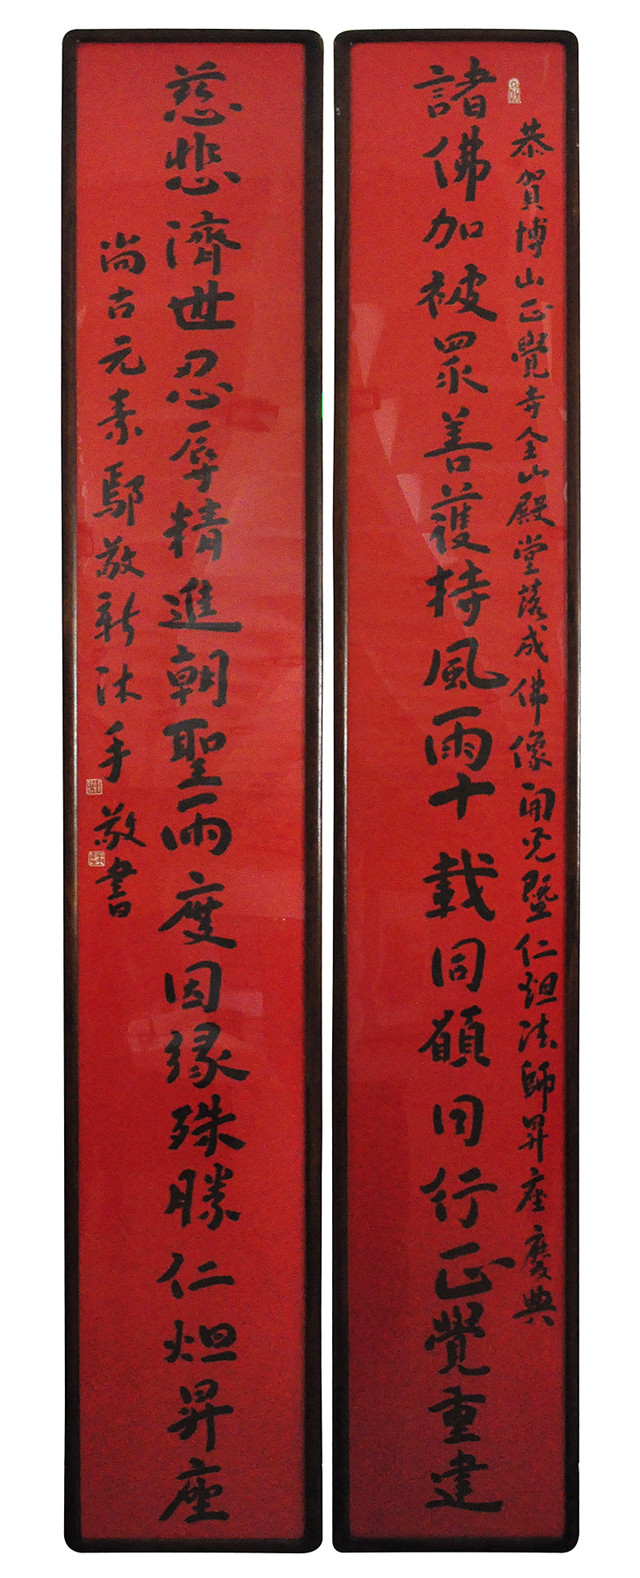 恭賀博山正覺寺全山殿堂落成佛像開光暨仁炟法師昇座慶典
諸佛加被眾善護持風雨十載同願同行正覺重建
慈悲濟世忍辱精進朝聖兩度因緣殊勝仁炟昇座
尚古元素鄢敬新沐手敬書